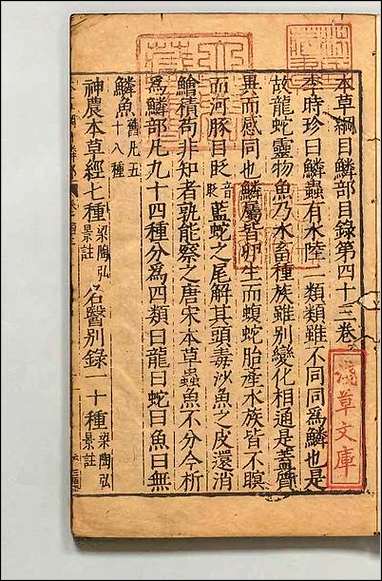 本草綱目鱗部目錄第四十三卷
李時珍曰鱗蟲有水陸二類類雖不同同爲鱗也是
故龍蛇靈物魚乃水畜種族雖別變化相通是蓋質
異而感同也鱗屬皆卵生而蝮蛇胎產水族皆不瞑
而河豚目眨音眨藍蛇之尾解其頭毒沙魚之皮還消
鱠積苟非知者孰能察之唐宋本草蟲魚不分今析
爲鱗部凡九十四種分爲四類曰龍曰蛇曰魚曰無
鱗魚舊凡五十八種
神農本草經七種梁陶弘景註 名醫別錄一十種梁陶弘景註
淺草文庫